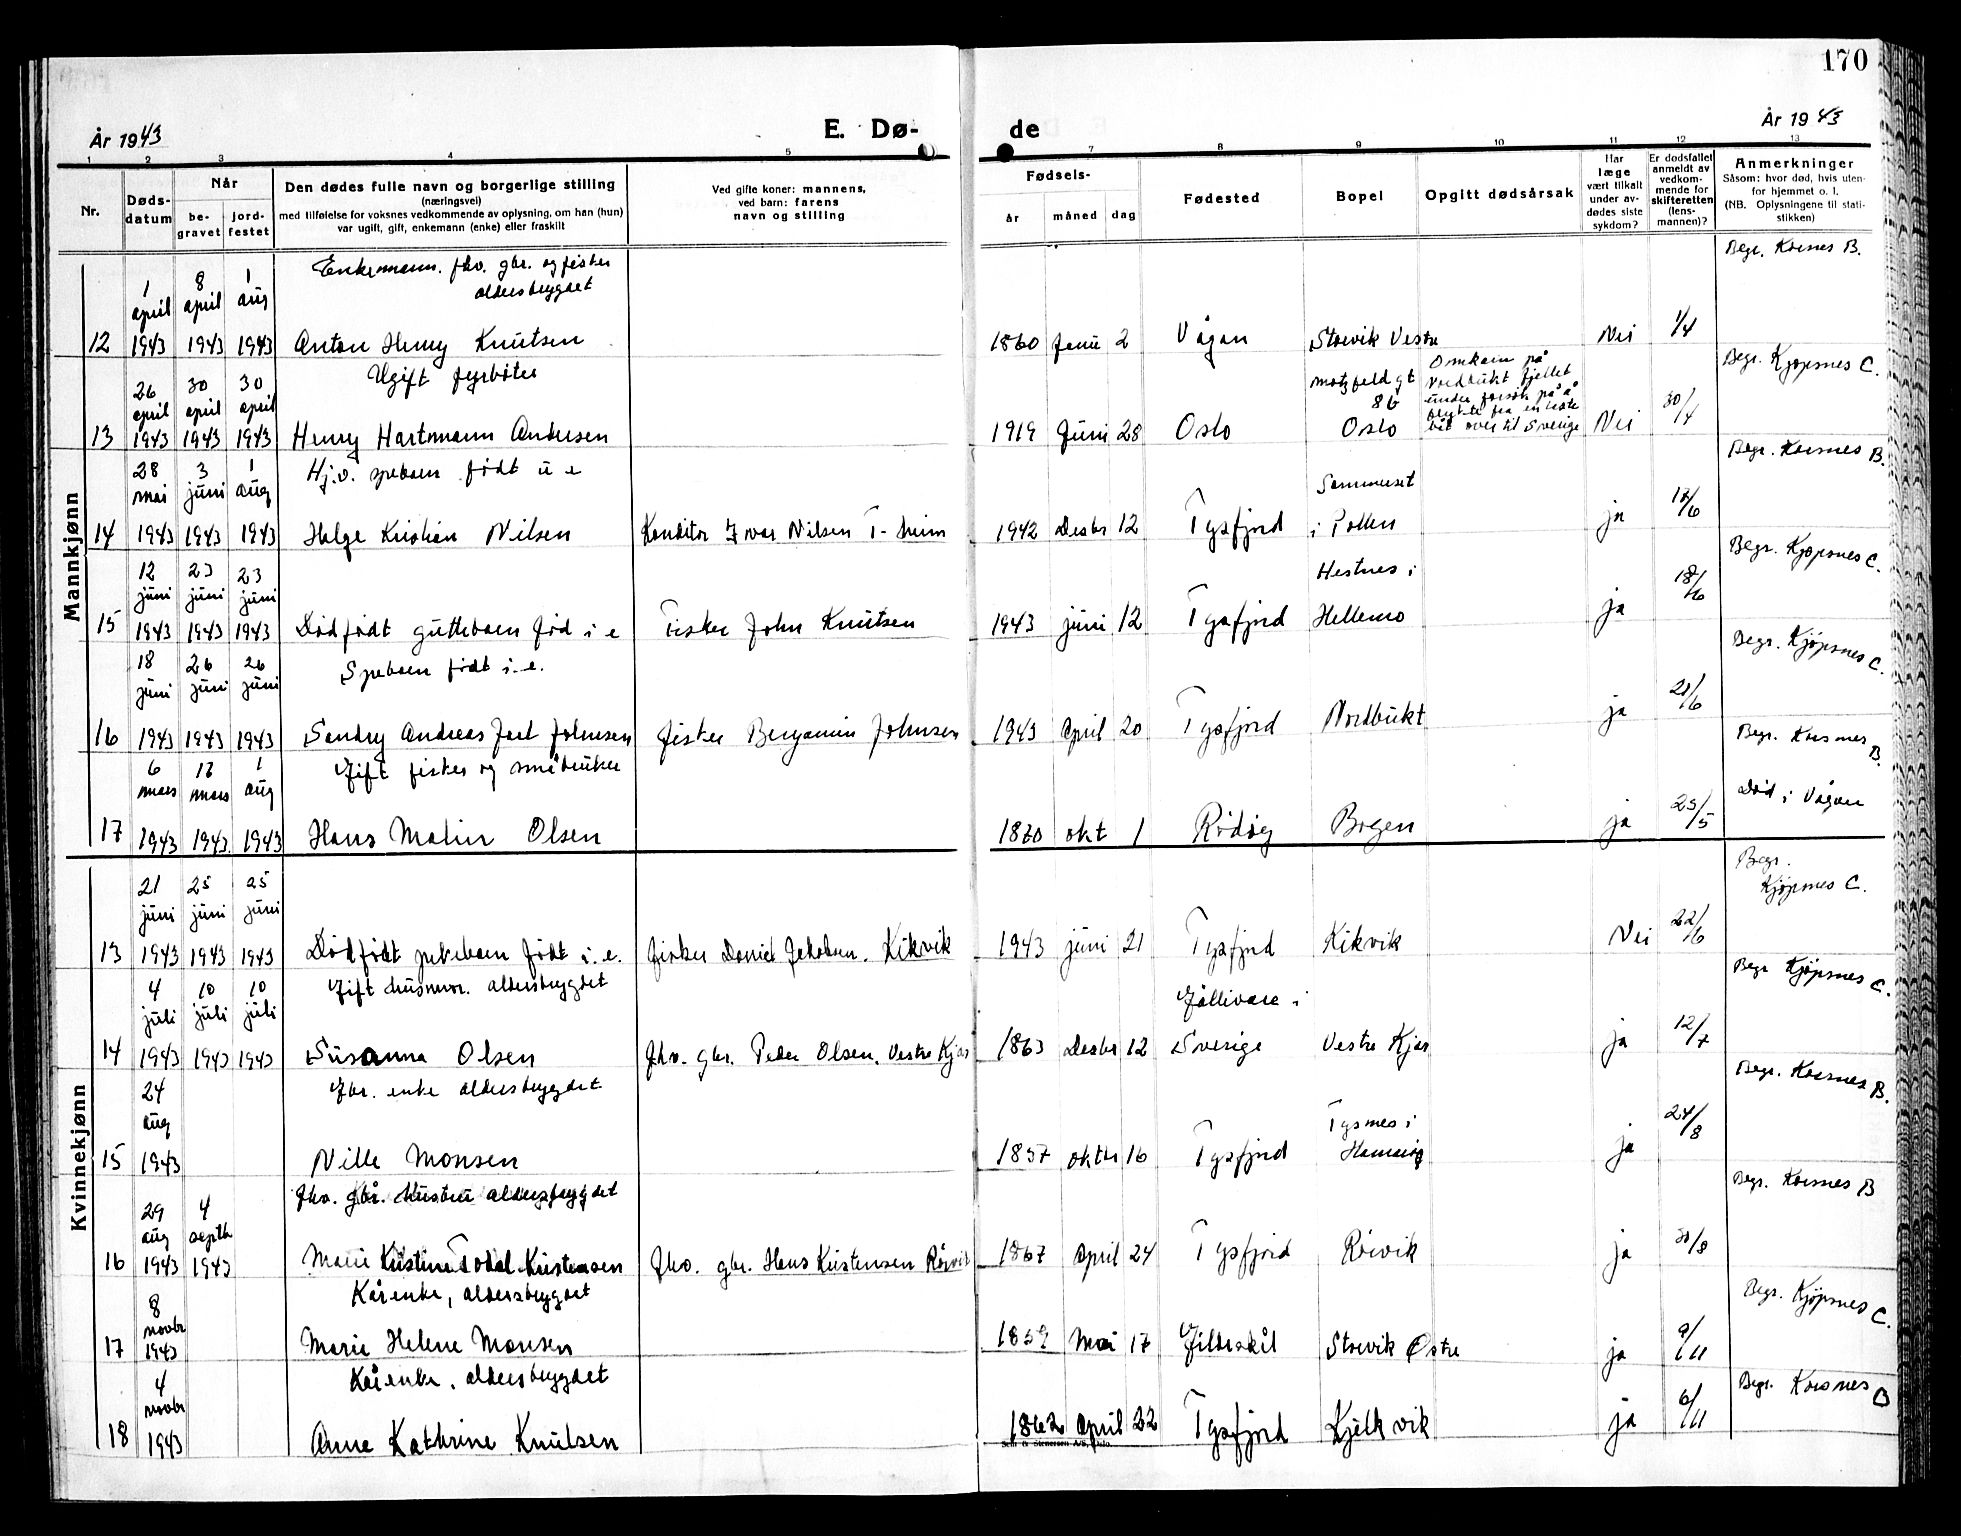 170
År 1943
E. Dø-
de
År 1943
1 2 3 4 5 7 8 9 10 11 12 13
Nr.
Døds-
datum
Når
be-
gravet
jord-
festet
Den dødes fulle navn og borgerlige stilling
(næringsvei)
med tilføielse for voksnes vedkommende av oplysning, om han (hun)
var ugift, gift, enkemann (enke) eller fraskilt
Ved gifte koner: mannens,
ved barn: farens
navn og stilling
Fødsels-
år måned dag
Fødested
Bopel
Opgitt dødsårsak
Har
læge
vært tilkalt
under av-
dødes siste
sykdom?
Er dødsfallet
anmeldt av
vedkom-
mende for
skifteretten
(lens-
mannen)?
Anmerkninger
Såsom: hvor død, hvis uten-
for hjemmet o. l.
(NB. Oplysningene til stati-
stikken)
Mannkjønn
Enkemann. fhv. gbr. og fisker
aldersbrygdet
1 april 8 april 1 aug
12 1943 1943 1943 Anton Henry Knutsen 1860 Juni 2 Vågan Storvik Vestre Nei 1/4 Begr. Korsnes B.
Ugift fyrbøter
26 april 30 april 30 april
13 1943 1943 1943 Henry Hartmann Andersen 1919 Juni 28 Oslo Motzfeld gt 8b Oslo
Omkom på
Nordbukt fjellet
under forsøk på å
flykte fra en
båt over til Sverige
Nei 30/4 Begr. Kjøpsnes C.
Hj.d. spebarn født u e
28 mai 3 juni 1 aug
14 1943 1943 1943 Helge Kristian Nilsen Konditor Ivar Nilsen T-heim 1942 Desbr 12 Tysfjord Sommerset i Pollen ja 17/6 Begr. Korsnes B.
12 juni 23 juni 23 juni
15 1943 1943 1943 Dødfødt guttebarn fød i e Fisker John Knutsen 1943 juni 12 Tysfjord Hestnes i Hellemo ja 18/6 Begr. Kjøpsnes C.
Spebarn født i.e.
18 juni 26 juni 26 juni
16 1943 1943 1943 Sendry Andreas Jarl Johnsen fisker Benjamin Johnsen 1943 April 20 Tysfjord Nordbukt ja 21/6 Begr. Kjøpsnes C.
Gift fisker og småbruker
6 mars 17 mars 1 aug
17 1943 1943 1943 Hans Malin Olsen 1870 okt 1 Rødøy Bogen ja 25/5 Begr. Korsnes B.
Død i Vågan
Kvinnekjønn
21 juni 25 juni 25 juni
13 1943 1943 1943 Dødfødt pikebarn født i.e. fisker Daniel Jakobsen. Kikvik 1943 juni 21 Tysfjord Kikvik Nei 22/6 Begr. Kjøpsnes C.
Gift husmor. aldersbrygdet
4 juli 10 juli 10 juli
14 1943 1943 1943 Susanna Olsen fhv. gbr. Peder Olsen. Vestre Kjær 1863 Desbr 12 Gällivare i Sverige Vestre Kjær ja 12/7 Begr Kjøpsnes C.
Gbr. enke aldersbrygdet
24 aug
15 1943 Nille Monsen 1857 oktbr 16 Tysfjord Tysnes i Hamarøy ja 24/8 Begr. Korsnes B.
fhv. gbr. hustru aldersbrygdet
29 aug 4 septbr
16 1943 1943 Marie Kristine Todal Kristensen fhv. gbr. Hans Kristensen Rørvik 1867 April 24 Tysfjord Rørvik ja 30/8 Begr. Korsnes B
Kårenke, aldersbrygdet
8 novbr
17 1943 Marie Helene Monsen 1859 Mai 17 Gildeskål Storvik Østre ja 9/11 Begr. Kjøpsnes C.
Kårenke. aldersbrygdet
4 novbr
18 1943 Anne Kathrine Knutsen 1862 April 22 Tysfjord Kjelkvik ja 6/11 Begr. Korsnes B
Sem & Stenersen A/S, Oslo.